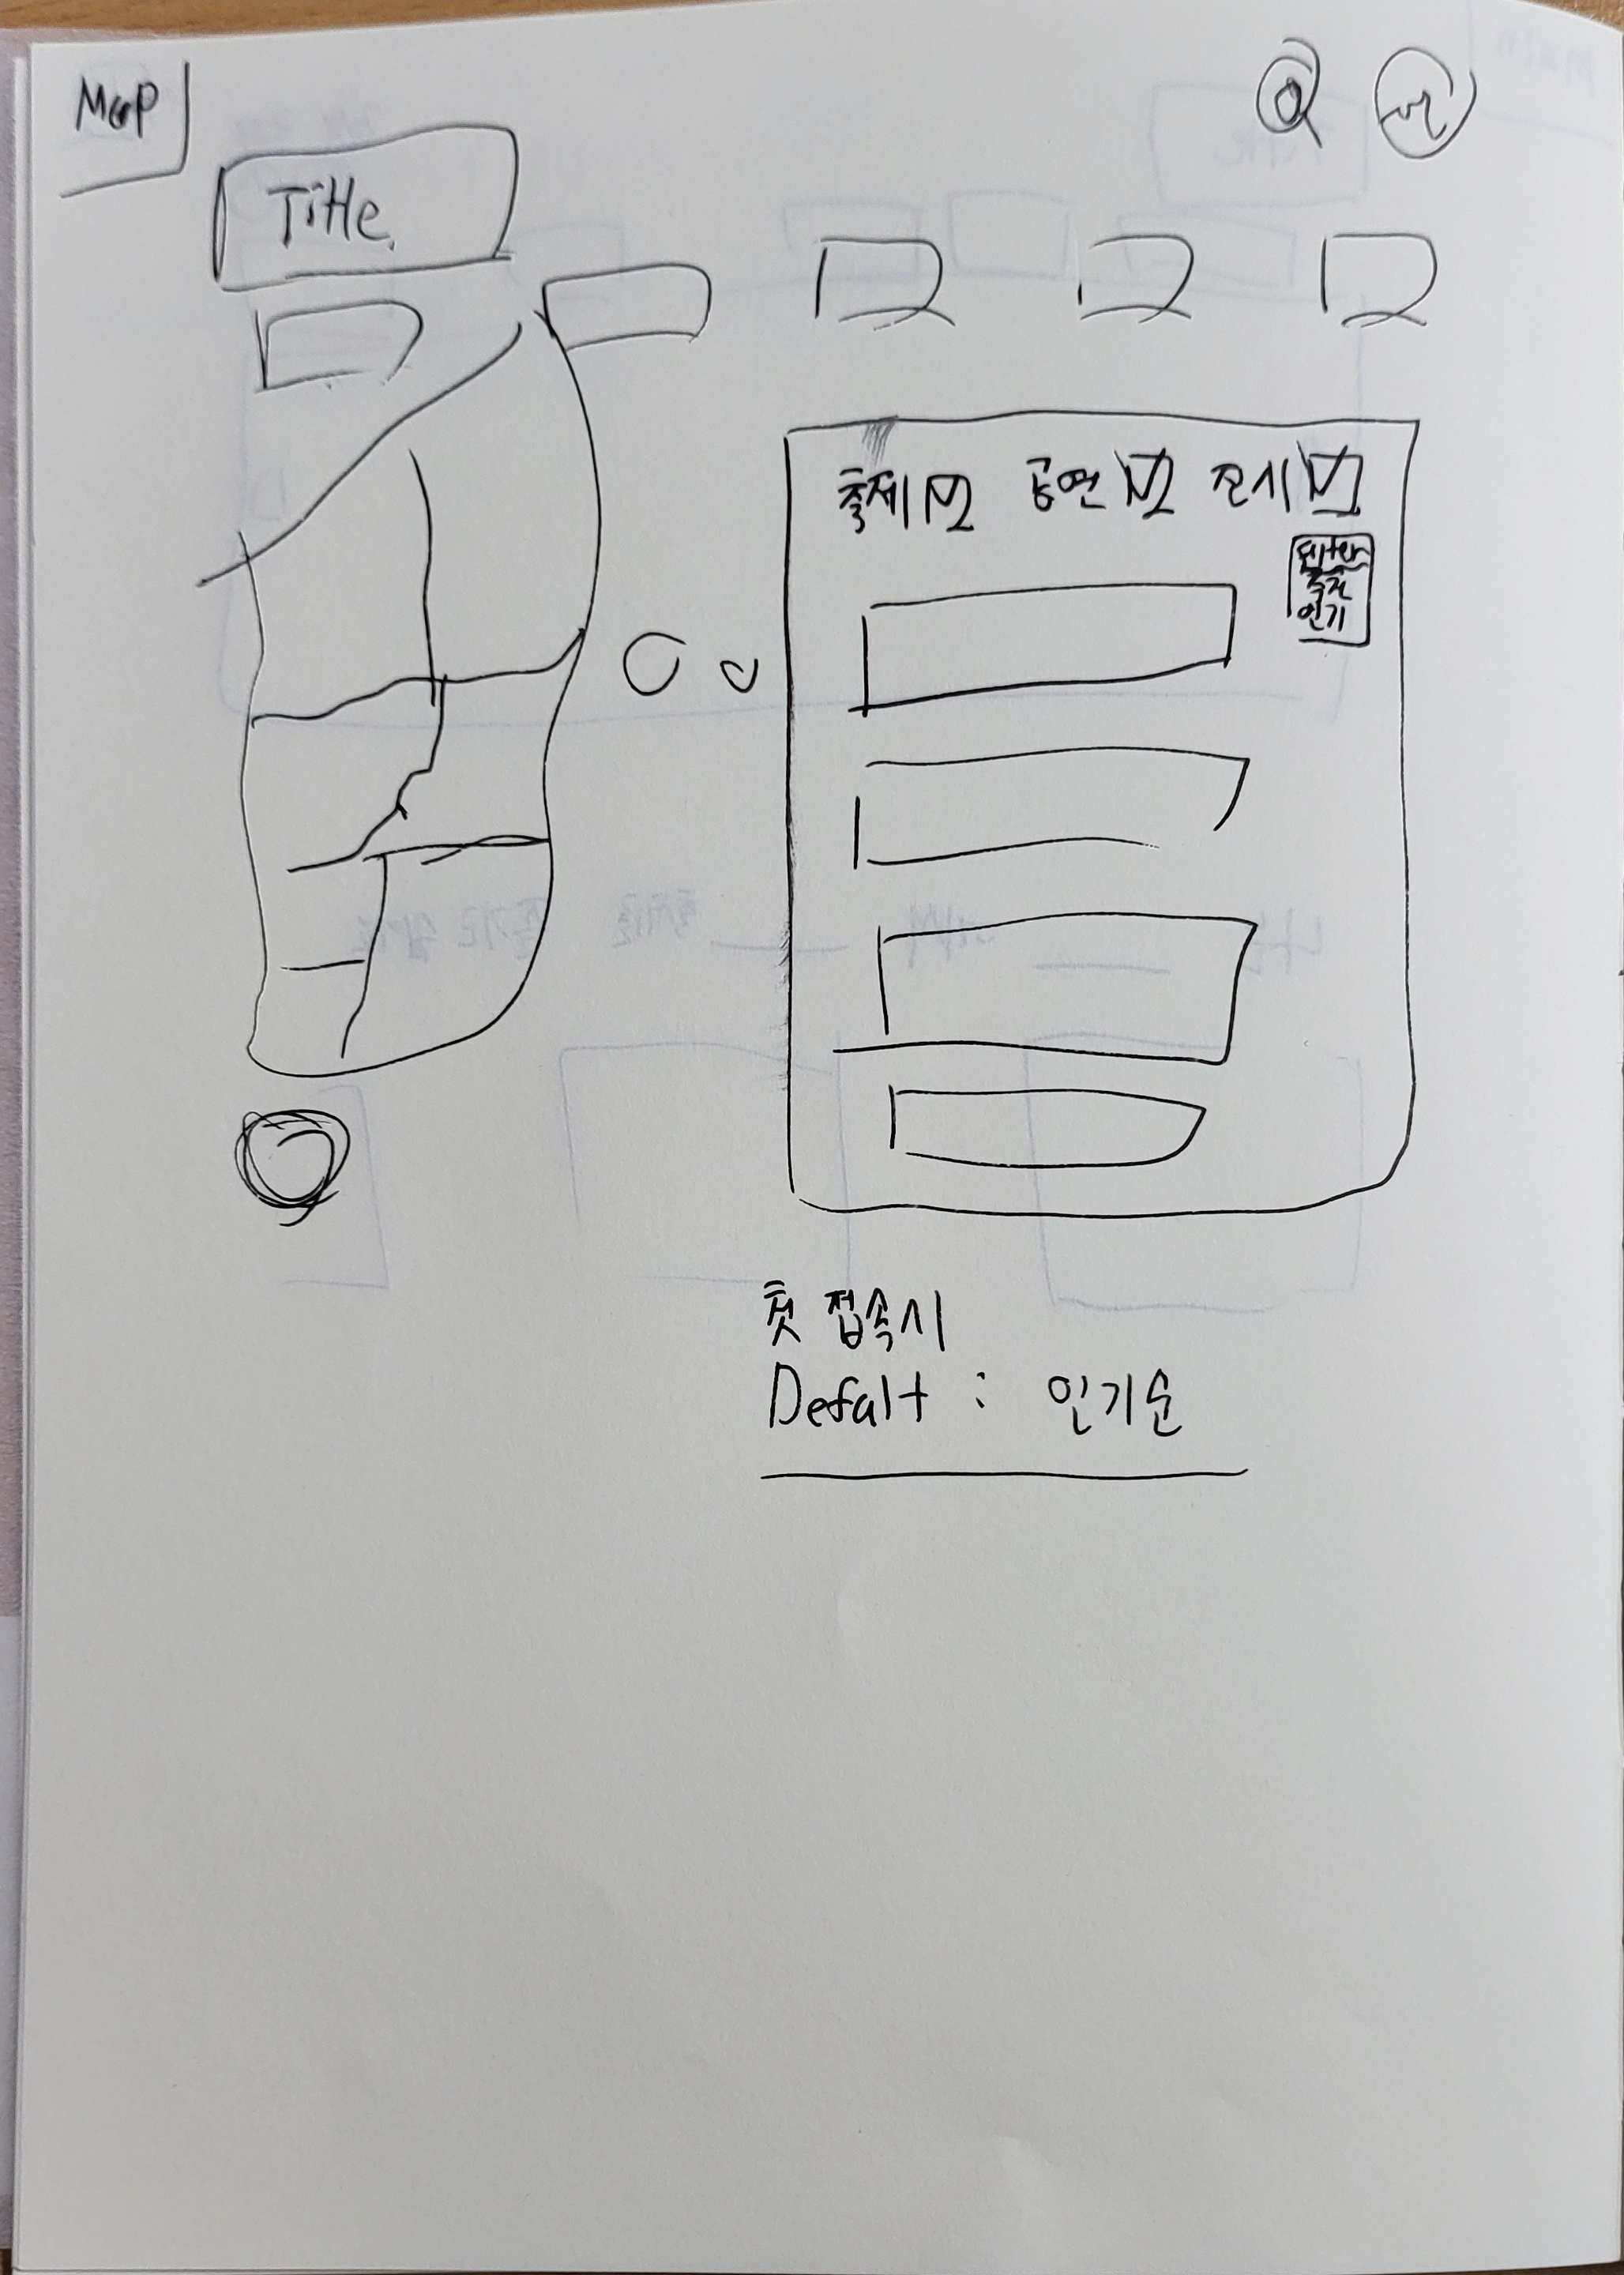 Map
Title
축제 공연 전시
추천
인기
첫 접속시
Defalt : 인기순